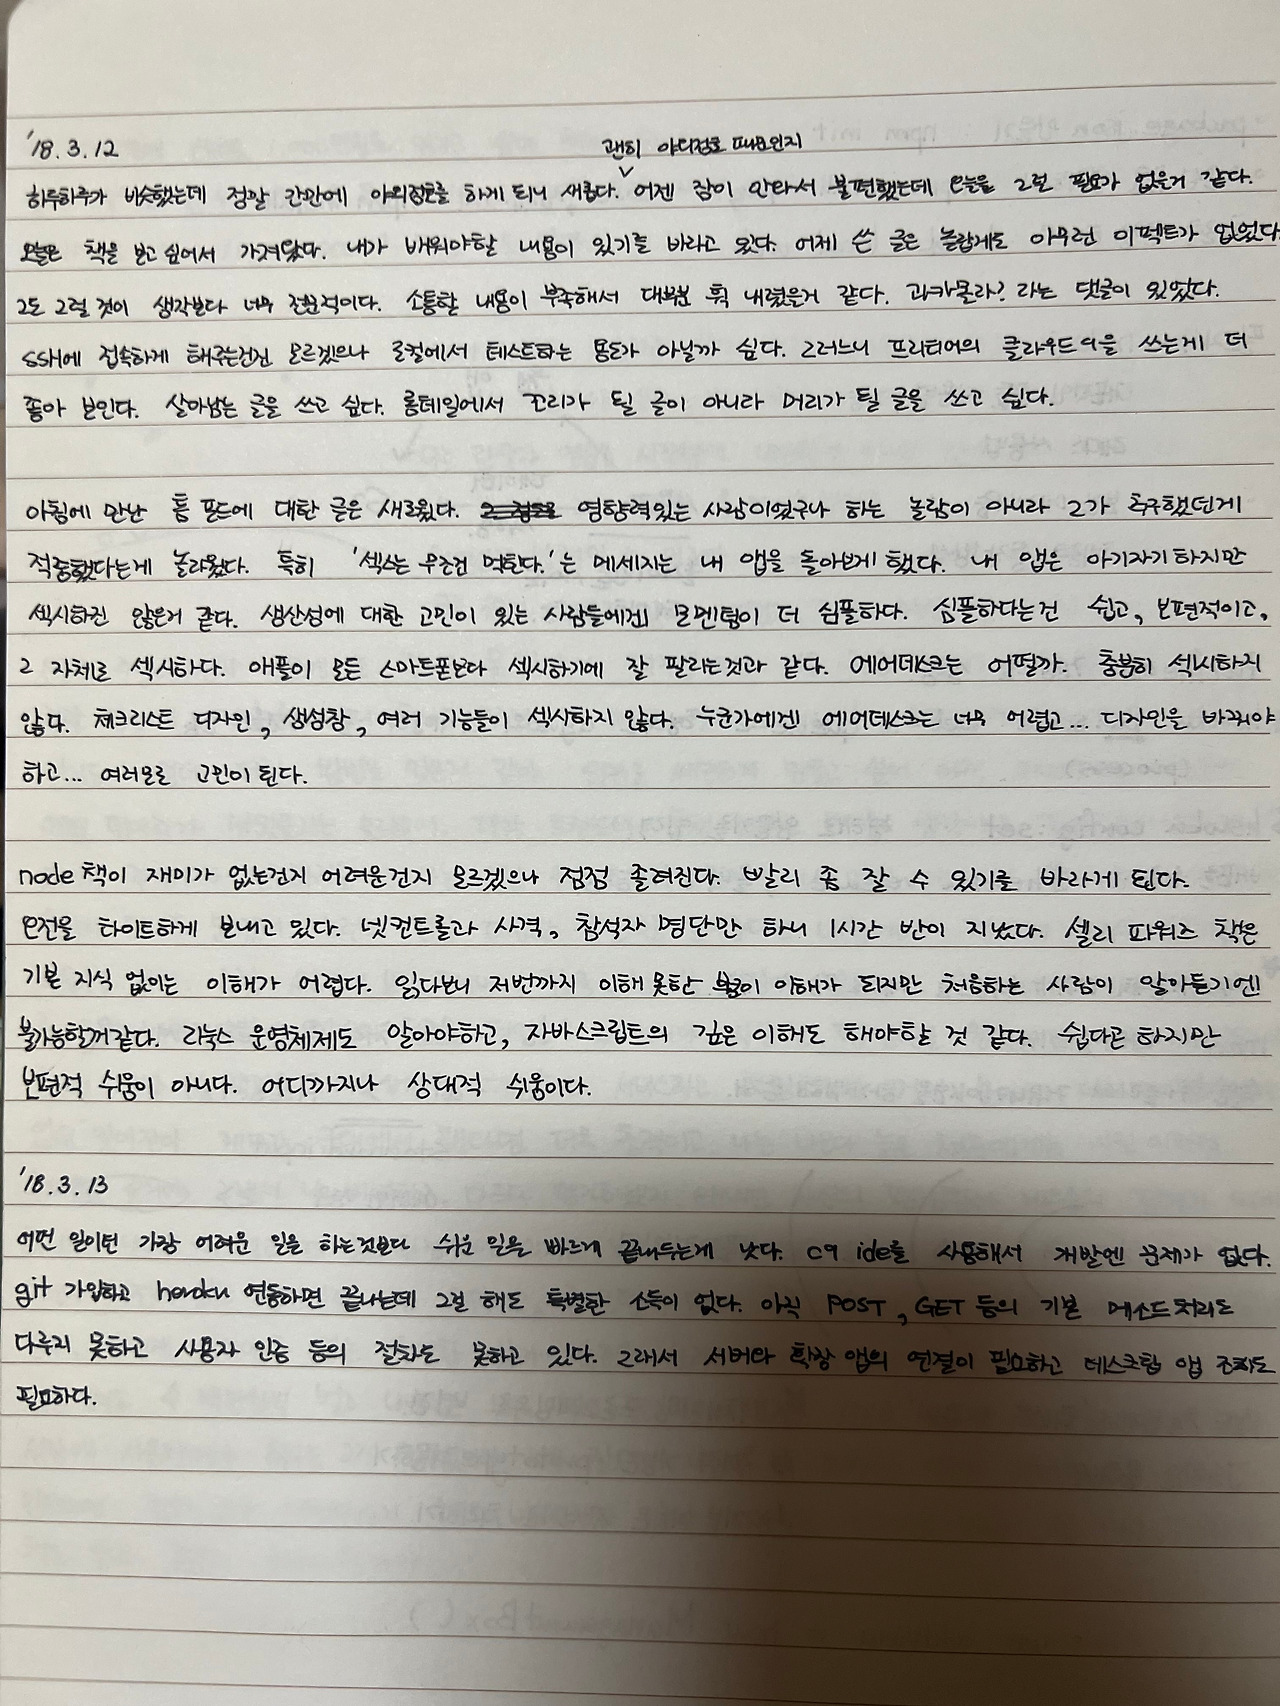 '18. 3. 12
괜히 야외점호 때문인지
하루하루가 비슷했는데 정말 간만에 야외점호를 하게 되니 새롭다. 어젠 잠이 안와서 불편했는데 오늘은 그럴 필요가 없을거 같다.
오늘은 책을 보고 싶어서 가져왔다. 내가 배워야할 내용이 있기를 바라고 있다. 어제 쓴 글은 놀랍게도 아무런 이펙트가 없었다
그도 그럴 것이 생각보다 너무 전문적이다. 소통할 내용이 부족해서 대부분 훅 내렸을거 같다. 과카몰라? 라는 댓글이 있었다.
SSH에 접속하게 해주는건진 모르겠으나 로컬에서 테스트하는 용도가 아닐까 싶다. 그러느니 프리티어의 클라우드9을 쓰는게 더
좋아 보인다. 살아남는 글을 쓰고 싶다. 롱테일에서 꼬리가 될 글이 아니라 머리가 될 글을 쓰고 싶다.
아침에 만난 톰 포드에 대한 글은 새로웠다. 영향력있는 사람이었구나 하는 놀람이 아니라 그가 추구했던게
적중했다는게 놀라웠다. 특히 '섹스는 무조건 먹힌다.'는 메세지는 내 앱을 돌아보게 했다. 내 앱은 아기자기하지만
섹시하진 않은거 같다. 생산성에 대한 고민이 있는 사람들에겐 모멘텀이 더 심플하다. 심플하다는건 쉽고, 보편적이고,
그 자체로 섹시하다. 애플이 모든 스마트폰보다 섹시하기에 잘 팔리는것과 같다. 에어데스크는 어떨까. 충분히 섹시하지
않다. 체크리스트 디자인, 생성창, 여러 기능들이 섹시하지 않다. 누군가에겐 에어데스크는 너무 어렵고... 디자인을 바꿔야
하고... 여러모로 고민이 된다.
node 책이 재미가 없는건지 어려운건지 모르겠으나 점점 졸려진다. 빨리 좀 잘 수 있기를 바라게 된다.
오전을 타이트하게 보내고 있다. 넷컨트롤과 사격, 참석자 명단만 하니 1시간 반이 지났다. 셸리 파워즈 책은
기본 지식 없이는 이해가 어렵다. 읽다보니 저번까지 이해 못한 부분이 이해가 되지만 처음하는 사람이 알아듣기엔
불가능할꺼같다. 리눅스 운영체제도 알아야하고, 자바스크립트의 깊은 이해도 해야할 것 같다. 쉽다곤 하지만
보편적 쉬움이 아니다. 어디까지나 상대적 쉬움이다.
'18. 3. 13
어떤 일이던 가장 어려운 일을 하는것보다 쉬운 일을 빠르게 끝내두는게 낫다. c9 ide를 사용해서 개발엔 문제가 없다.
git 가입하고 heroku 연동하면 끝나는데 그걸 해도 특별한 소득이 없다. 아직 POST, GET 등의 기본 메소드 처리도
다루지 못하고 사용자 인증 등의 절차도 못하고 있다. 그래서 서버와 확장 앱의 연결이 필요하고 데스크탑 앱 조차도
필요하다.